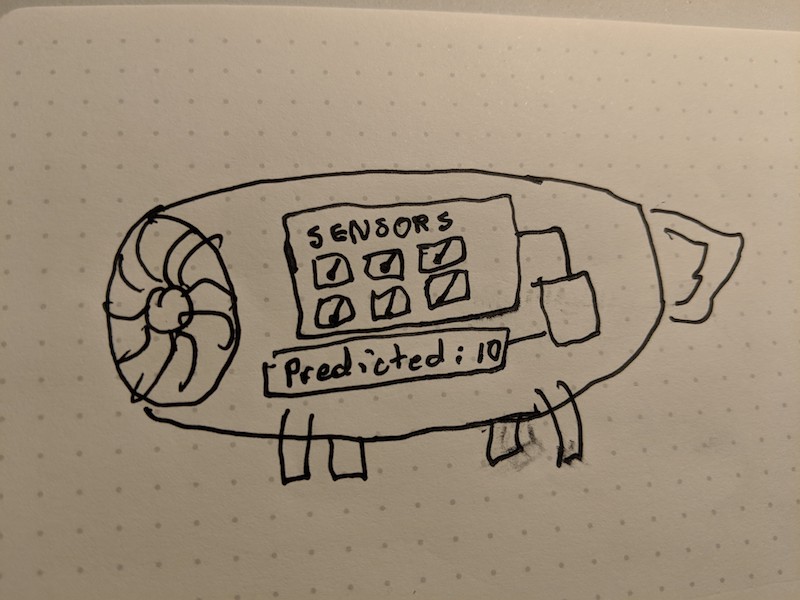 SENSORS
Predicted: 10